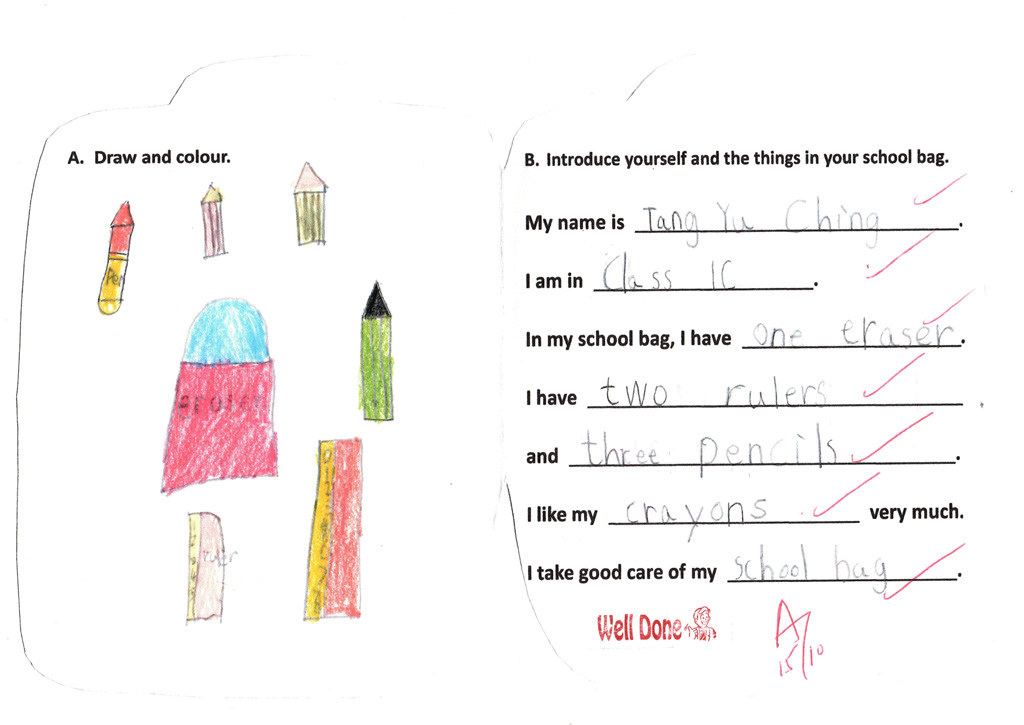 A. Draw and colour.
Pen
eraser
ruler
B. Introduce yourself and the things in your school bag.
My name is Tang Yu Ching.
I am in Class 1C.
In my school bag, I have one eraser.
I have two rulers
and three pencils.
I like my crayons very much.
I take good care of my school bag.
Well Done
A
15/10